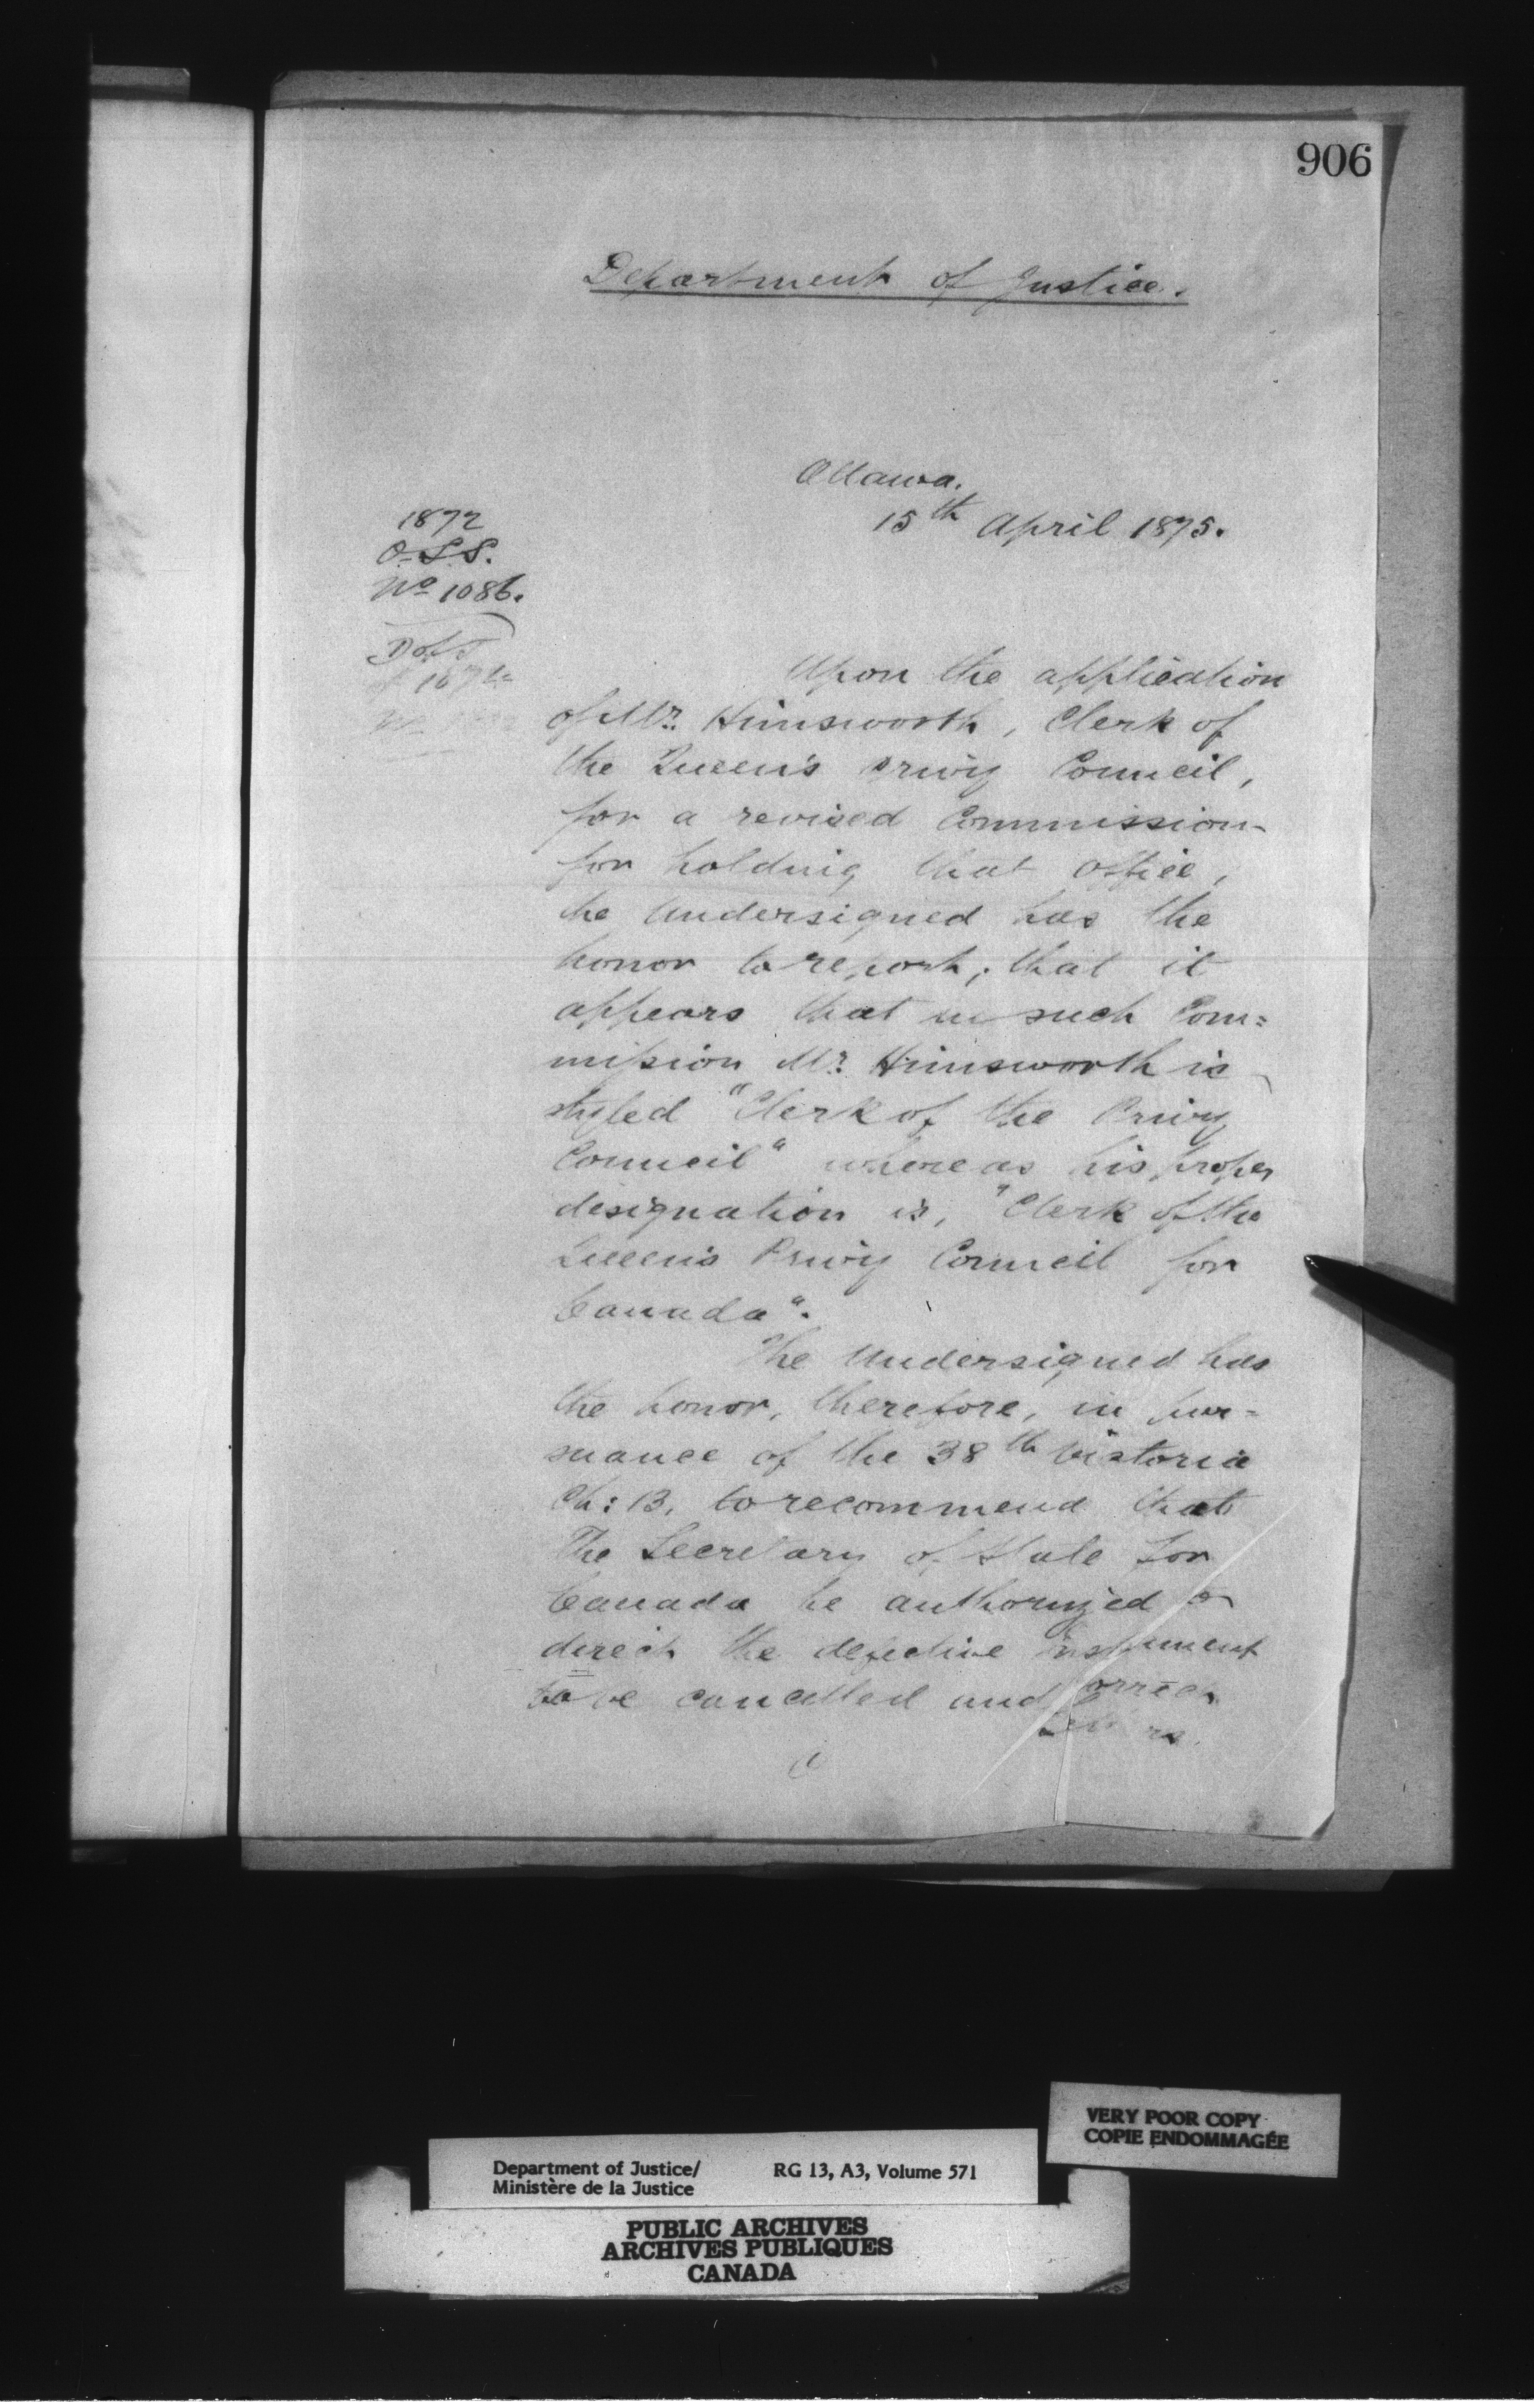 906
Department of Justice.
Ottawa.
15th April 1875.
1872
O.S.S.
No 1086.
D of J
Upon the application
of Mr. Himsworth, Clerk of
the Queen's Privy Council,
for a revised Commission
for holding that office,
the Undersigned has the
honor to report, that it
appears that in such Com=
mission Mr. Himsworth is
styled "Clerk of the Privy
Council" whereas his proper
designation is, "Clerk of the
Queen's Privy Council for
Canada".
The Undersigned has
the honor, therefore, in pur=
suance of the 38th Victoria
Ch: 13, to recommend that
The Secretary of State for
Canada be authorized to
direct the defective instrument
to be cancelled and correct
Letters
VERY POOR COPY
COPIE ENDOMMAGÉE
Department of Justice/ RG 13, A3, Volume 571
Ministère de la Justice
PUBLIC ARCHIVES
ARCHIVES PUBLIQUES
CANADA